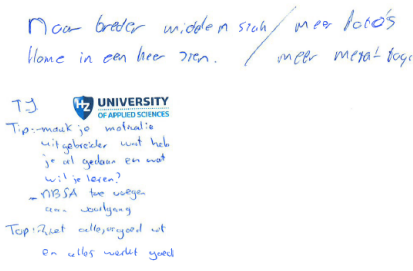 Naar breder midden
Home in een keer zien.
meer foto's
meer
TJ
HZ UNIVERSITY
OF APPLIED SCIENCES
Tip:-maak je motivatie
uitgebreider wat heb
je al gedaan en wat
wil je leren?
- NBSA toe voegen
aan voortgang
Top: ziet alles er goed uit
en alles werkt goed